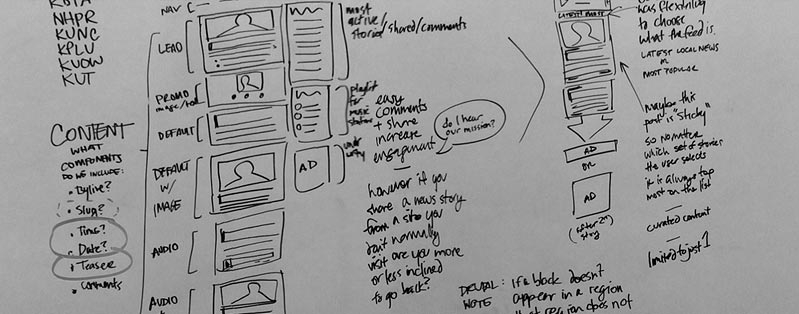 NHPR
KUNC
KPLU
KUOW
KUT
CONTENT
WHAT
COMPONENTS
DO WE INCLUDE:
• Byline?
• Slug?
• Time?
• Date?
• Teaser
• Comments
NAV
LEAD
PROMO
DEFAULT
DEFAULT
W/
IMAGE
AUDIO
AUDIO
most
active
stories/shared/comments
playlist
for
music
stations
AD
easy
comments
+ share
increase
engagement
do I hear
our mission?
however if you
share a news story
from a site you
don't normally
visit are you more
or less inclined
to go back?
was flexibility
to choose
what the feed is.
LATEST LOCAL NEWS
or
MOST POPULAR
maybe this
part is "sticky"
so no matter
which set of stories
the user selects
it is always top
most on the list
curated content
limited to just 1
AD
OR
AD
(after 2nd
story)
DRUPAL: If a block doesn't
NOTE appear in a region
that region does not